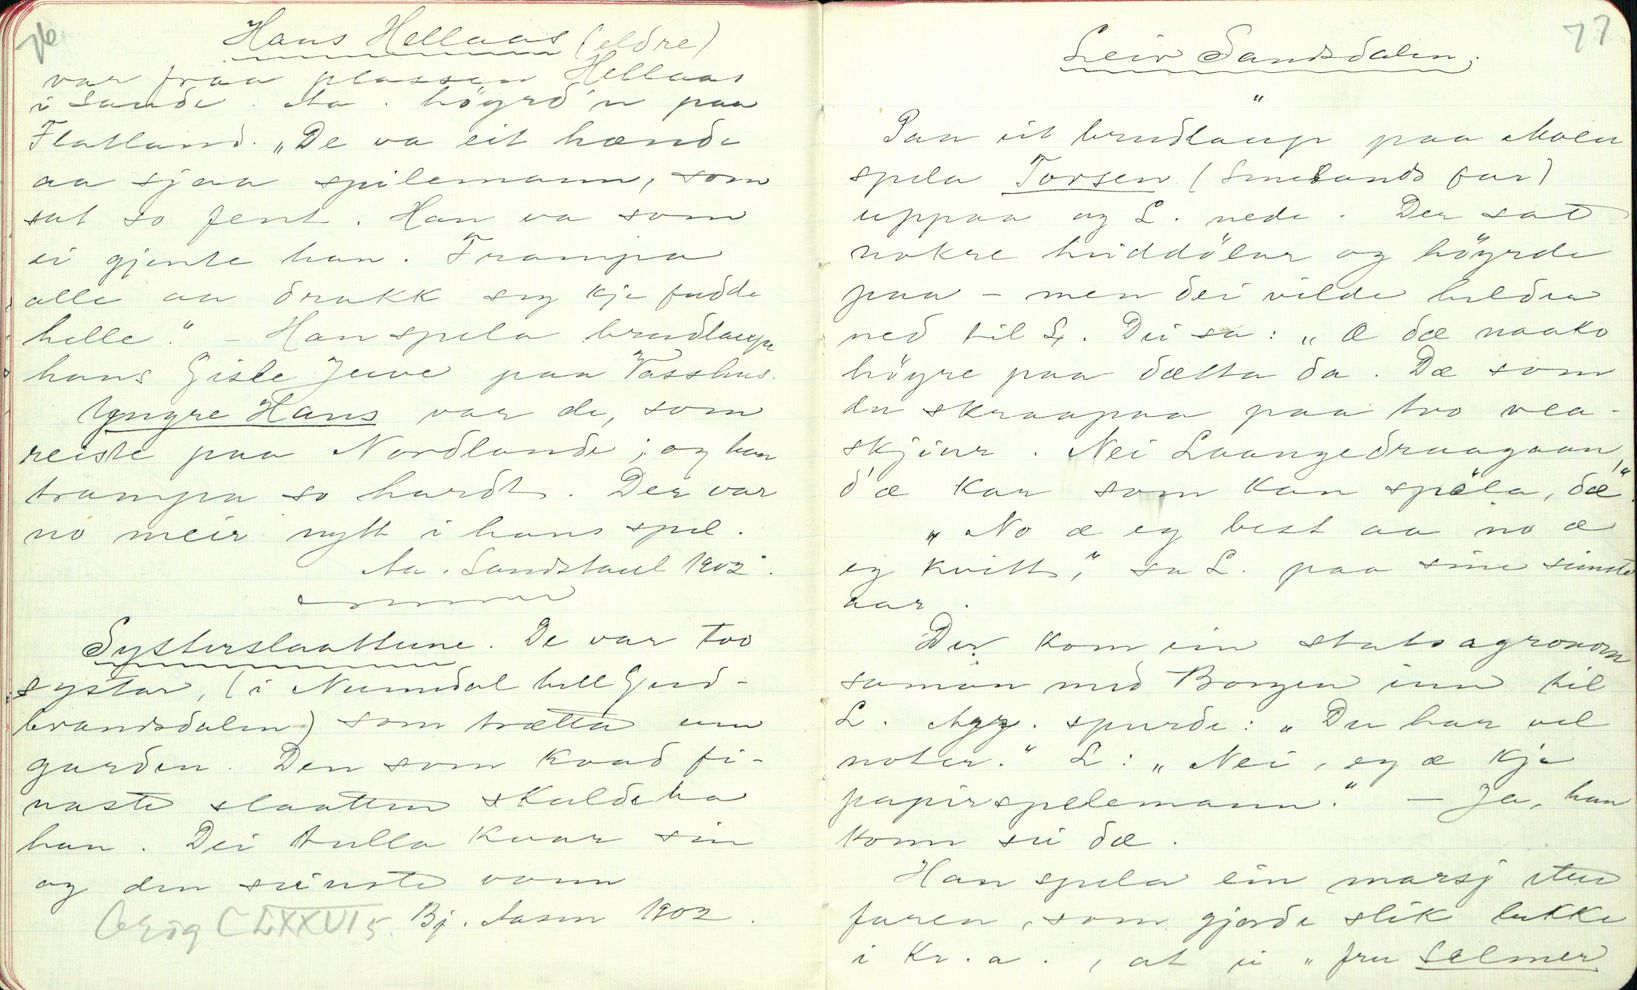 76
Hans Hellaas (eldre)
var fraa plassen Hellaas
i Sande. Aa. høyrd'n paa
Flatland. „De va eit hænde
aa sjaa spilemann, som
sat so fent. Han va som
ei gjente han. Trampa
alle aa drakk seg kje fudde
helle." – Han spela brudlaupe
hans Gisle Juve paa Vasshus.
Yngre Hans var de, som
reiste paa Nordlande; og han
trampa so hardt. Der var
no meir nytt i hans spel.
Aa. Sandstaul 1902.
Systerslaattene. De var tvo
systar, (i Numedal hell Gud-
brandsdalen) som trætta um
garden. Den som kvad fi-
naste slaatten skulde ha
han. Dei tulla kvar sin
og den seinste vann
Orig CLXXVI 5. Bj. Aasen 1902.
77
Leiv Sandsdalen.
"
Paa eit brudlaup paa Moen
spela Torsen (Smelands far)
uppaa og L. nede. Der sat
nokre hiddølar og høyrde
paa – men dei vilde heldra
ned til L. Dei sa: „Æ dæ naako
høyre paa dætta da. Dæ som
du skraapaa paa tvo vea-
skjiur. Nei Laangedraagaan,
d'æ kar som kan spela, dæ".
„No æ eg best aa no æ
eg kvitt," sa L. paa sine seinste
aar.
Der kom ein statsagronom
saman med Borgen inn til
L. Agr. spurde: „Du har vel
noter." L: „Nei, eg æ kje
papirspelemann." – Ja, han
kom sei dæ.
Han spela ein marsj etter
faren, som gjorde slik lukke
i Kr.a., at ei „fru Selmer